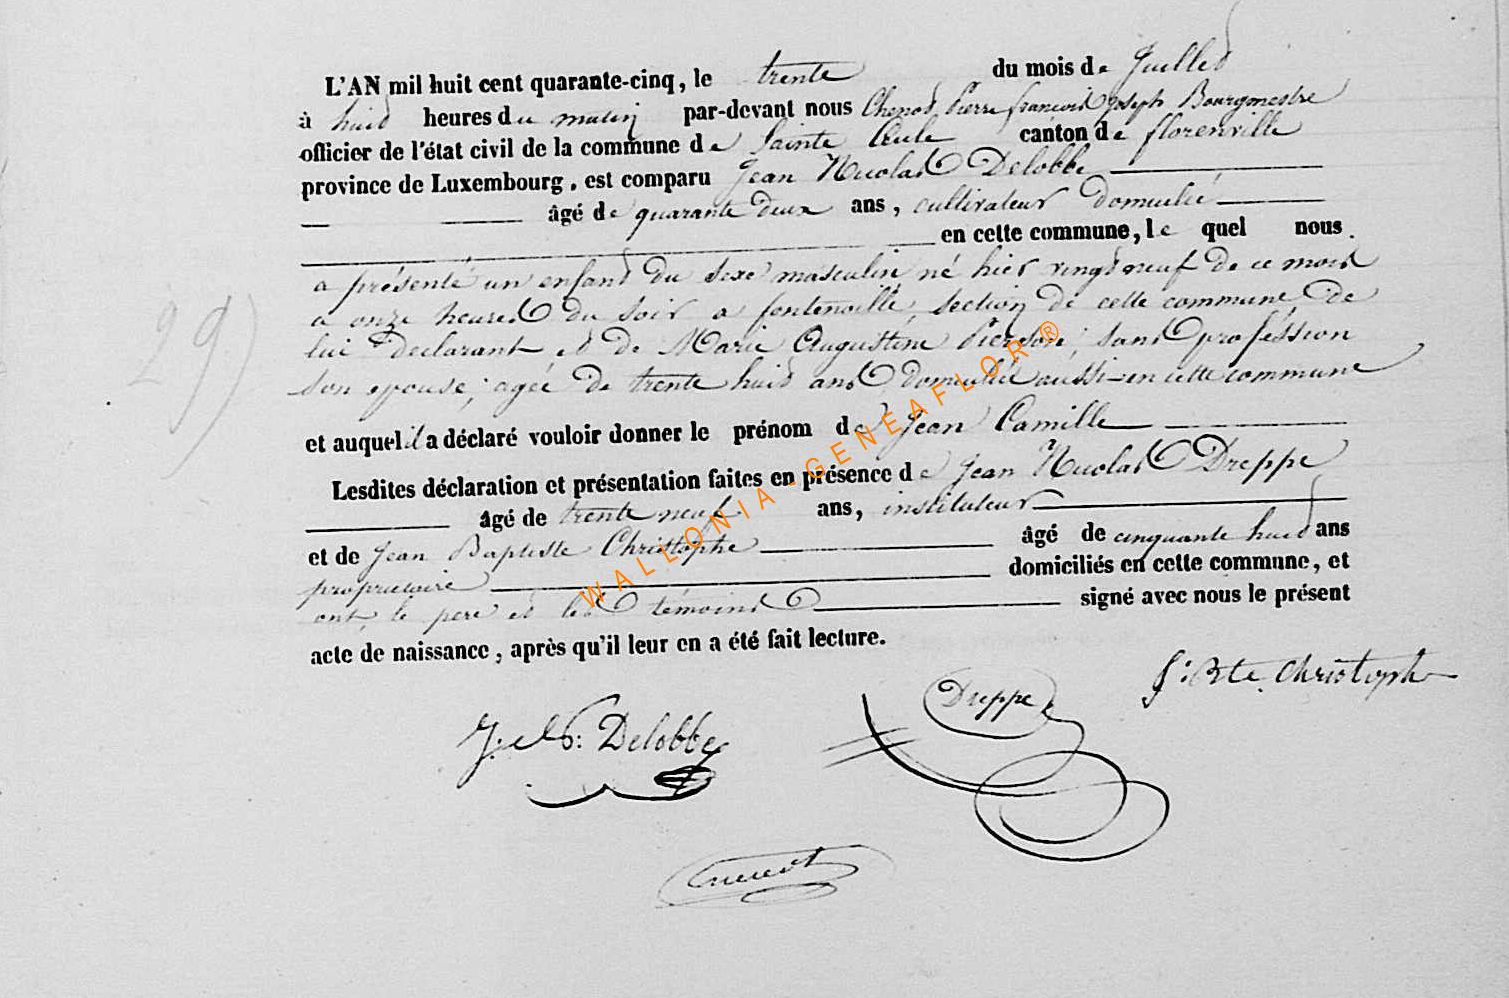 L'AN mil huit cent quarante-cinq, le trente du mois de Juillet
à huit heures du matin par-devant nous Chenot Pierre françois Joseph Bourgmestre
officier de l'état civil de la commune de Sainte Cécile canton de florenville
province de Luxembourg, est comparu Jean Nicolas Delobbe
âgé de quarante deux ans, cultivateur domicilié
en cette commune, le quel nous
a présenté un enfant du sexe masculin né hier vingt neuf de ce mois
a onze heures du soir a fontenoille, section de cette commune de
lui declarant et de Marie Augustine Pierson, sans proféssion
son epouse, agée de trente huit ans domiciliée aussi en cette commune
et auquel il a déclaré vouloir donner le prénom de Jean Camille
Lesdites déclaration et présentation faites en présence de Jean Nicolas Dreppe
âgé de trente neuf ans, instituteur
et de Jean Baptiste Christophe âgé de cinquante huit ans
propriétaire domiciliés en cette commune, et
ont, le pere et les témoins signé avec nous le présent
acte de naissance, après qu'il leur en a été fait lecture.
29)
J: Bte Christophe
Dreppe
J: N: Delobbe
WALLONIA-GENEAFLOR®